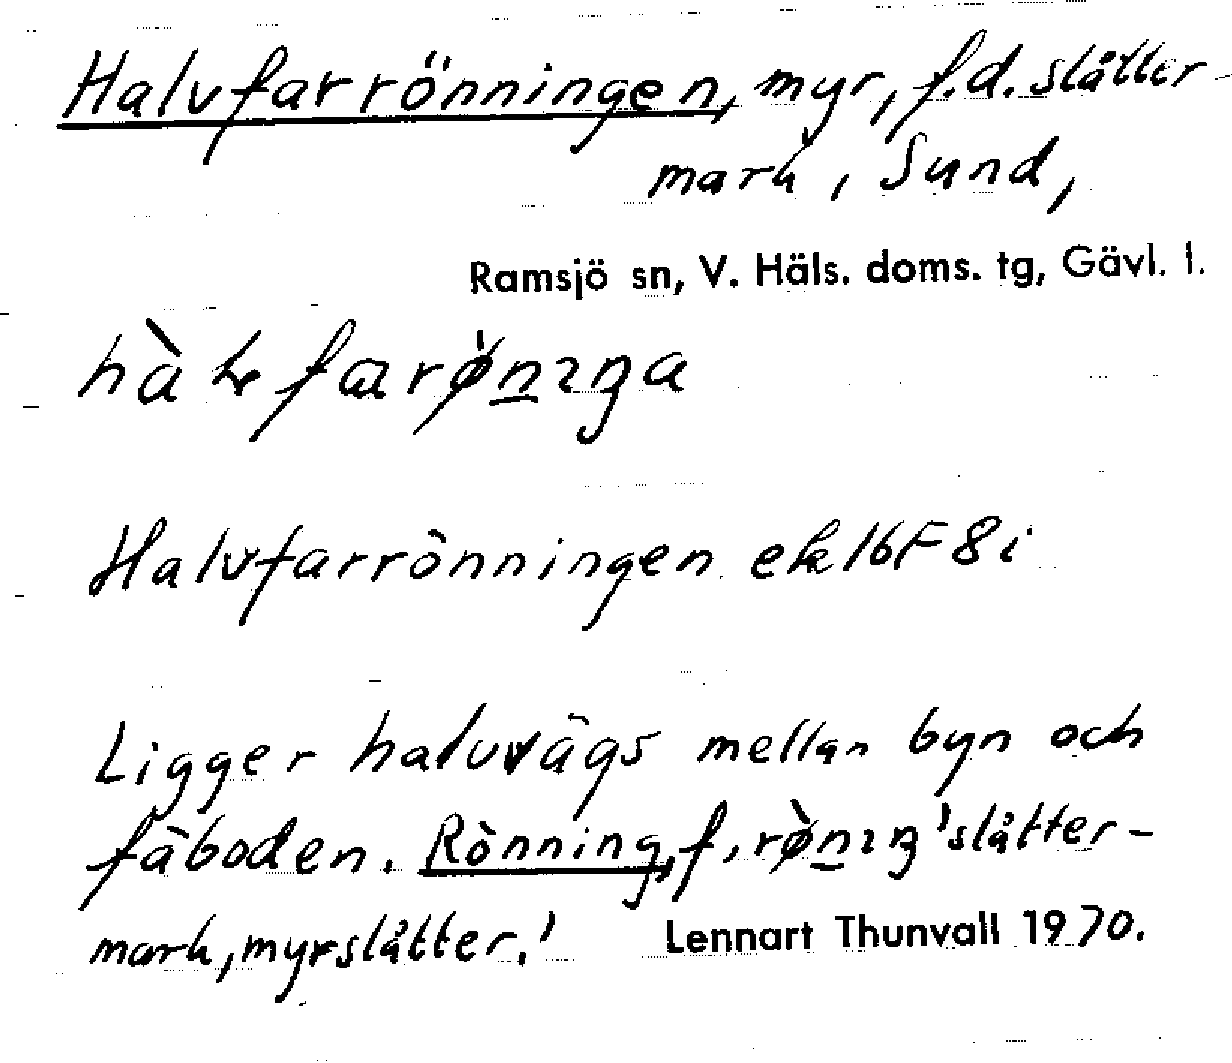 Halvfarrönningen, myr, f.d. slåtter-
mark, Sund,
Ramsjö sn, V. Häls. doms. tg, Gävl. l.
Halvfarrönningen ek 16F 8i
Ligger halvvägs mellan byn och
fäboden. Rönning, f, rø̀nıŋ 'slåtter-
mark, myrslåtter.'
Lennart Thunvall 1970.